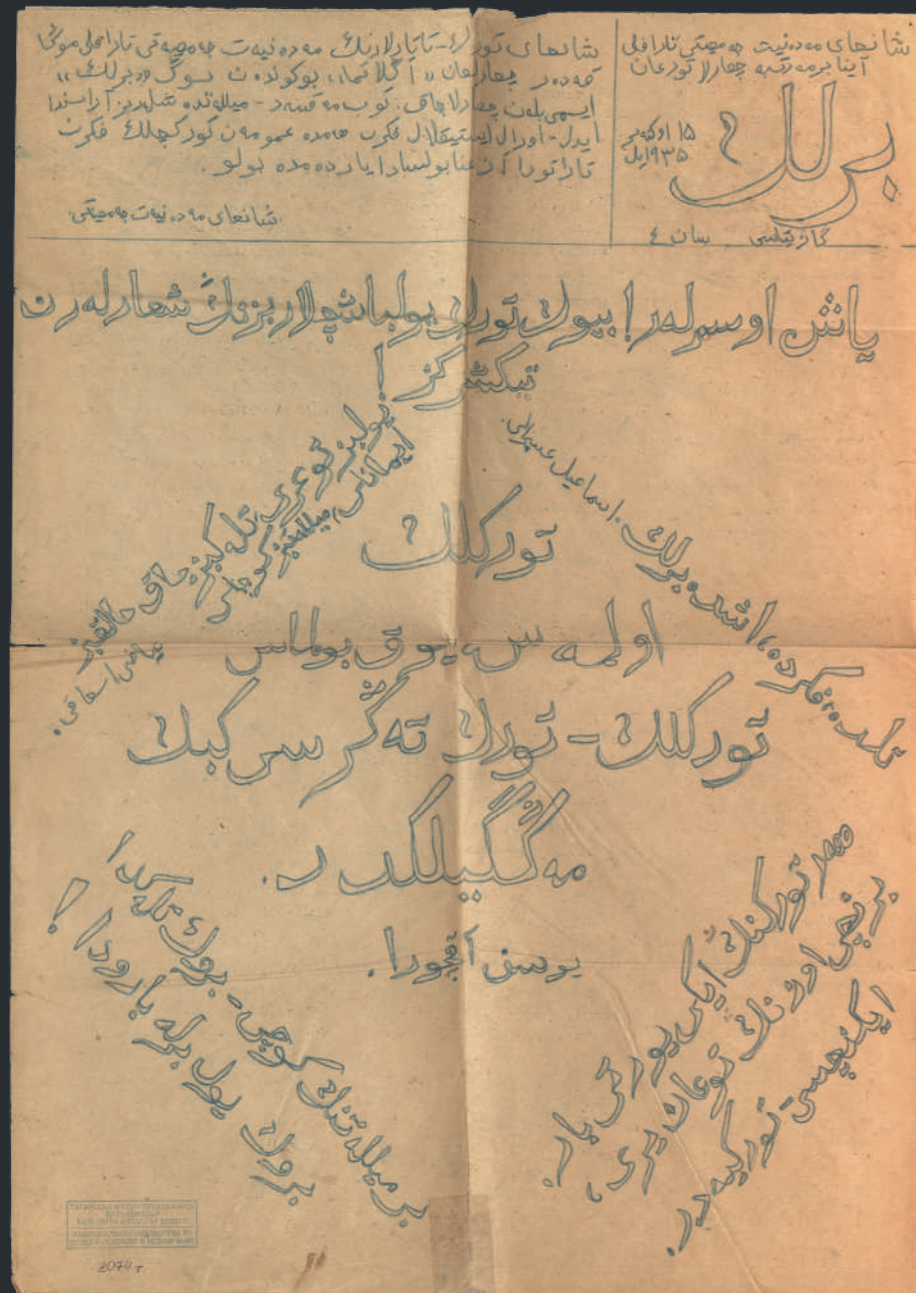 شانحای مەدەنیت جەمعیتی تارافلی
آینا بر مەرتەبە چغارلا تورغان
١٥ اوكتەبر
١٩٣٥ ایل
برلك
گازیتاسی سان ٤
شانحای تورك-تاتارلارنڭ مەدەنیەت جەمعیەتی تارافلی موڭا
قەدەر چغارلغان «آڭلاتما» بوكوندەن سوڭ «برلك»
ایسمی بلەن چغارلاچاق. توب مەقسەد - میللەتدەشلەربز آراسندا
ایدل-اورال ایستیقلال فكرن هەمدە عمومەن توركچلك فكرن
تاراتودا آز عنا بولسادا یاردەمدە بولو.
شانحای مەدەنیەت جەمعیتی.
یاش اوسمرلەر! بیوك تورك یولباشچلاربزنڭ شعارلەرن
تیكشرگز!
یولبز توعری، تلەكبز حاق، حالقبز
ایمانلی، میللەتبز كوچلی
عیاض اسحاقی.
تلدە، فكردە، اشدە برلك. اسماعیل عسپرالی.
توركلك
اولمەس، یوق بولماس
توركلك - تورك تەڭرسی كبك
مەڭگیلكدر.
یوسف آقچورا.
بر میللەتنڭ كوچی - بروك تلەكدە!
بروك یول برلە بارودا!
هەر توركنڭ ایكی یورتی بار.
برنچی اوزنڭ توعان یری،
ایكنچیسی توركیەدر.
2074 т